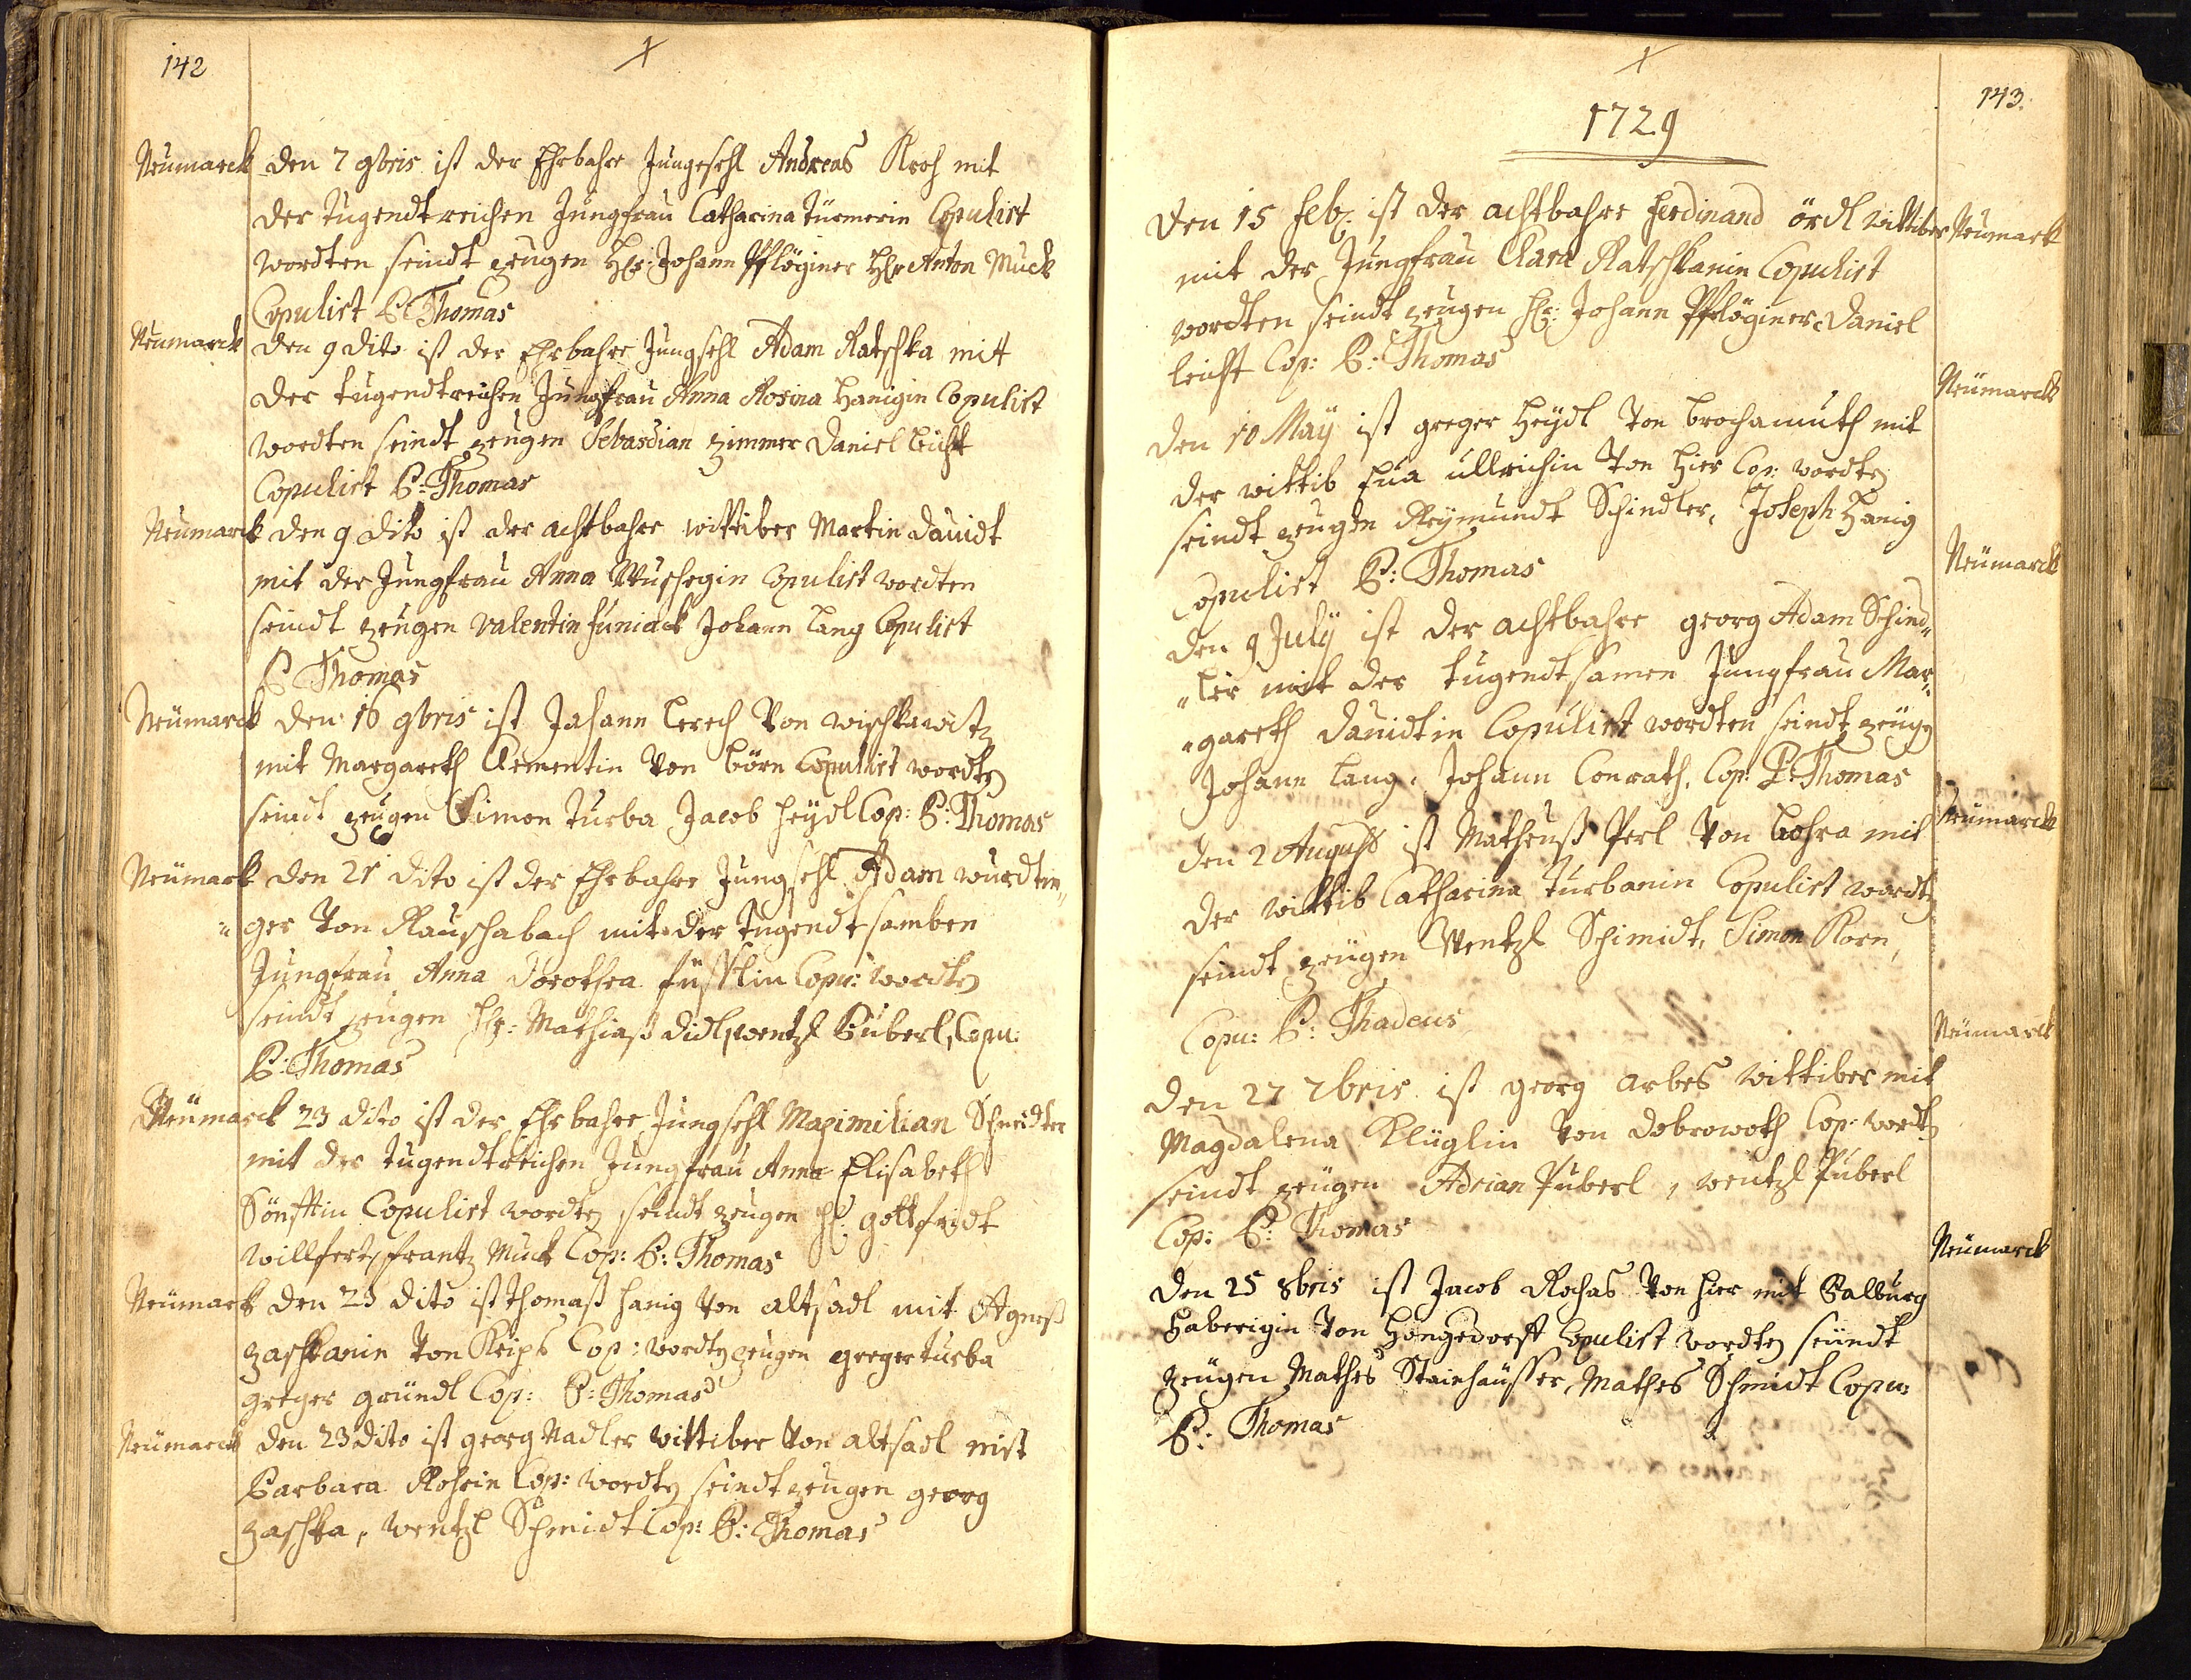 142
Neumarck den 7 9bris ist der Ehrbahre Jungesehl Andreas Kroh mit
der tugendtreichen Jungfrau Catharina Türmerin Copulirt
wordten seindt zeugen Hr: Johann Pflöginer Hr Anton Muck
Copulirt P: Thomas
Neumarck den 9 dito ist der Ehrbahre Jungsehl Adam Ratschka mitt
der tugendtreichen Jungfrau Anna Rosina Hanigin Copulirt
wordten seindt zeugen Sebasdian Zimmer Daniel leicht
Copulirt P: Thomas
Neumarck den 9 dito ist der achtbahre wittiber Martin Dauidt
mit der Jungfrau Anna Copulirt wordten
seindt zeugen Valentin Juniack Johann Lang Copulirt
P Thomas
Neumarck den 16 9bris ist Johann lerch von wischkawitz
mit Margareth Clementin von Börn Copulirt wordten
seindt zeugen Simon Turba Jacob Heydl Cop: P: Thomas
Neumarck den 21 dito ist der Ehrbahre Jungsehl Adam wurdtin„
„ger von Rauschabach mit der tugendtsamben
Jungfrau Anna Dorothea Copu: wordten
seindt zeugen Hr: Mathiaß Didl, wentzl Buberl, Copu:
P: Thomas
Neumarck 23 dito ist der Ehrbahre Jungsehl Maximilian Schneidter
mit der tugendtreichen Jungfrau Anna Elisabeth
Sönfftin Copulirt wordten seindt zeugen H: gottfridt
willfert, frantz Muck Cop: P: Thomas
Neumarck den 23 dito ist thomaß hanig von altsadl mit Agneß
zaschkanin von Krips Cop: wordten zeugen greger turba
greger gründl Cop: P: Thomas
Neumarck den 23 dito ist georg Nadler wittiber von altsadl mit
Barbara Rohrin Cop: wordten seindt zeugen georg
zaschka, wentzl Schmidt Cop: P: Thomas
143.
1729
den 15 feb: ist der achtbahre ferdinand ördl wittiber Neumarck
mit der Jungfrau Clara Ratschkanin Copulirt
wordten seindt zeugen Hr: Johann Pflöginer, Daniel
leicht Cop: P: Thomas
Neumarck
den 10 May ist greger Heydl von brochamuth mit
der wittib Eua ullrichin von hier Cop: wordten
seindt zeugen Reymundt Schindler, Joseph Hanig
Copulirt P: Thomas
Neumarck
den 9 July ist der achtbahre georg Adam Schind„
„ler mit der tugendtsamen Jungfrau Mar„
„gareth Dauidtin Copulirt wordten seindt zeugen
Johann Lang, Johann Conrath, Cop: P: Thomas
Neumarck
den 2 Augusts ist Matheuß Perl von Lohra mit
der wittib Catharina Turbanin Copulirt wordten
seindt zeugen Wentzl Schimidt, Simon Korn,
Copu: P: Thadeus
Neumarck
den 27 7bris ist georg arbes wittiber mit
Magdalena Klüglin von dobrowoth Cop: wordten
seindt zeugen Adrian Puberl, wentzl Puberl
Cop: P: Thomas
Neumarck
den 25 8bris ist Jacob Rochas von hier mit Balburg
Haberigin von Hongedorff Copulirt wordten seindt
zeugen Mathes Stainhäusser, Mathes Schmidt Copu:
P: Thomas